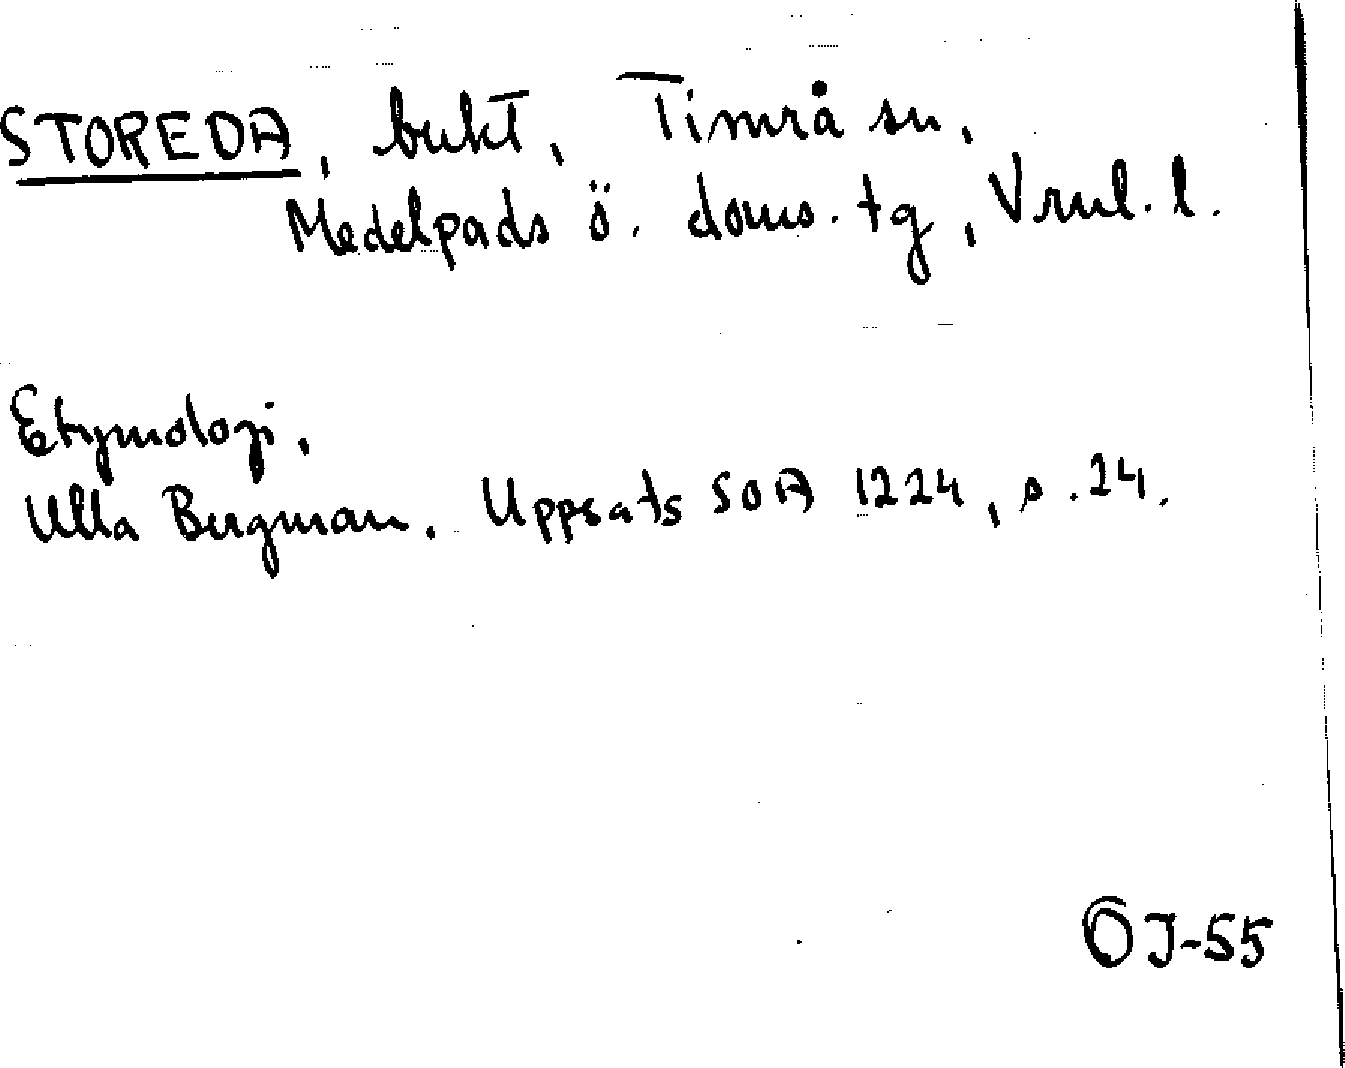 STOREDA, bukt, Timrå sn,
Medelpads ö. doms. tg, Vrnl. l.
Etymologi,
Ulla Bergman. Uppsats SOA 1224, s. 24.
OJ-55